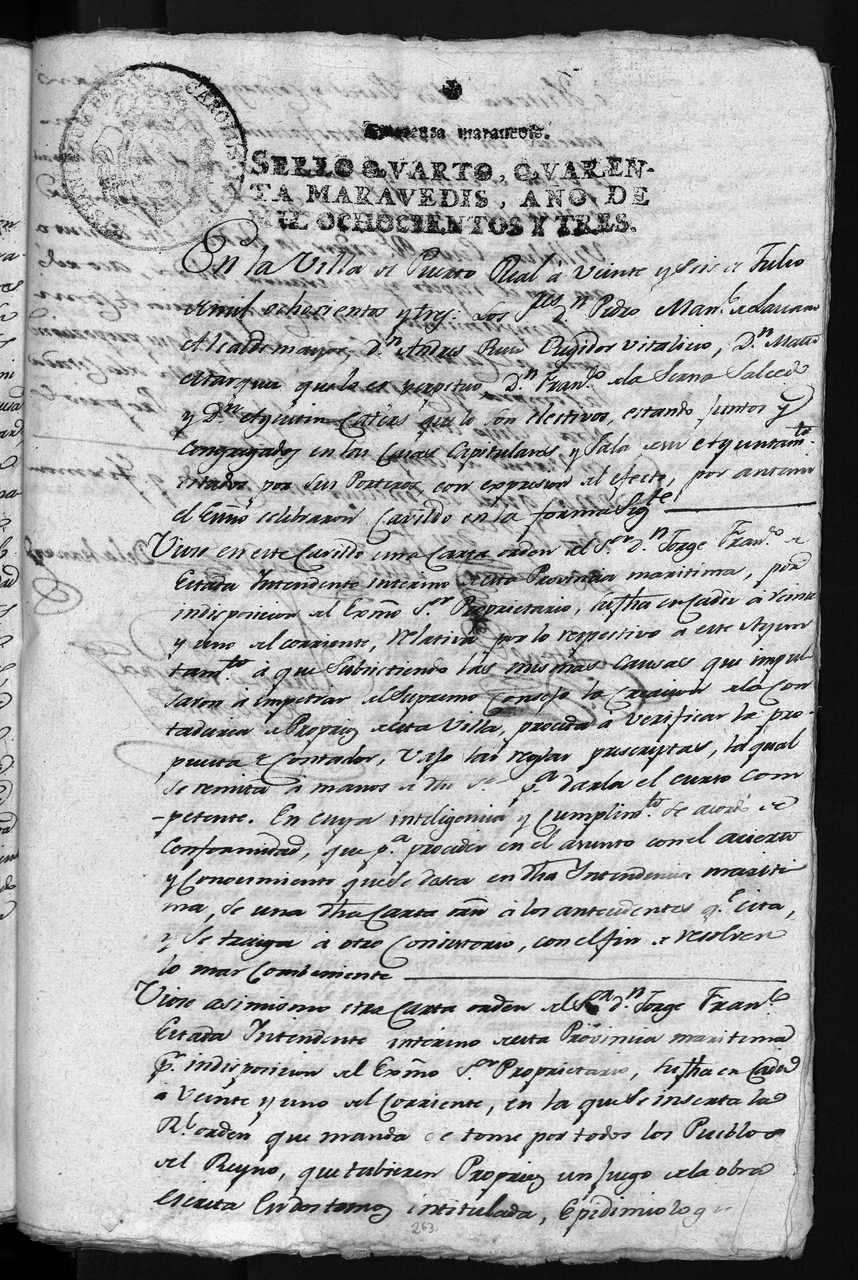 Quarenta maravedis.
SELLO QVARTO, QVAREN-
TA MARAVEDIS, AÑO DE
MIL OCHOCIENTOS Y TRES.
CAROLUS
En la Villa de Puerto Real à Veinte y seis de Julio
de mil ochocientos y tres: Los Sres Dn Pedro Manl de
Alcalde mayor, Dn Andres Ruiz Regidor Vitalicio, Dn Mateo
que lo es perpetuo, Dn Franco de la Serna Salcedo
y Dn Agustin que lo son electivos, estando juntos y
Congregados en las Casas Capitulares y Sala de su Ayuntamto
citados por sus Porteros con expresion del efecto, por antemi
el Esno celebraron Cavildo en la forma sigte
Viose en este Cavildo una Carta orden del Sor Dn Jorge Franco de
Estada Intendente interino de esta Provincia maritima, por
indisposicion del Exmo Sor Proprietario, su fha en Cadiz à veinte
y uno del corriente, relativa por lo respectivo à este Ayun
tamto à que subsistiendo las mismas causas que impul
saron à impetrar del Supremo Consejo la Creacion de la Con
taduria de Proprios de esta Villa, proceda à verificar la pro
puesta de Contador, vajo las reglas prescriptas, la qual
se remita à manos de dho Sr pa darla el curso com
-petente. En cuya inteligencia y Cumplimto se acordó de
Conformidad, que pa proceder en el asunto con el acierto
y Conocimiento que se desea en dha Intendencia mariti
ma, se una dha Carta òrn à los antecedentes qe cita,
y se traiga à otro Consistorio, con el fin de resolver
lo mas combeniente
Viose asimismo otra Carta orden del Sor Dn Jorge Franco
Estada Intendente interino de esta Provincia maritima
pr indisposicion del Exmo Sor Proprietario, su fha en Cadiz
à Veinte y uno del Corriente, en la que se inserta la
Rl orden que manda se tome por todos los Pueblos
del Reyno, que tubieren Proprios un juego de la obra
escrita en dos tomos intitulada, Epidimiologia
263